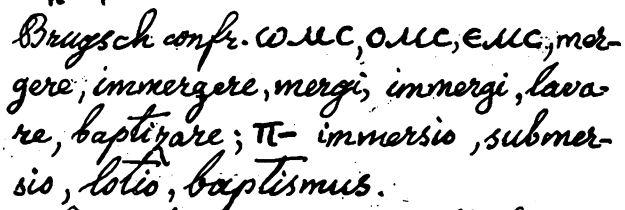 Brugsch confr. ⲱⲙⲥ, ⲟⲙⲥ, ⲉⲙⲥ, mer-
gere, immergere, mergi, immergi, lava-
re, baptizare; ⲡ- immersio, submer-
sio, lotio, baptismus.